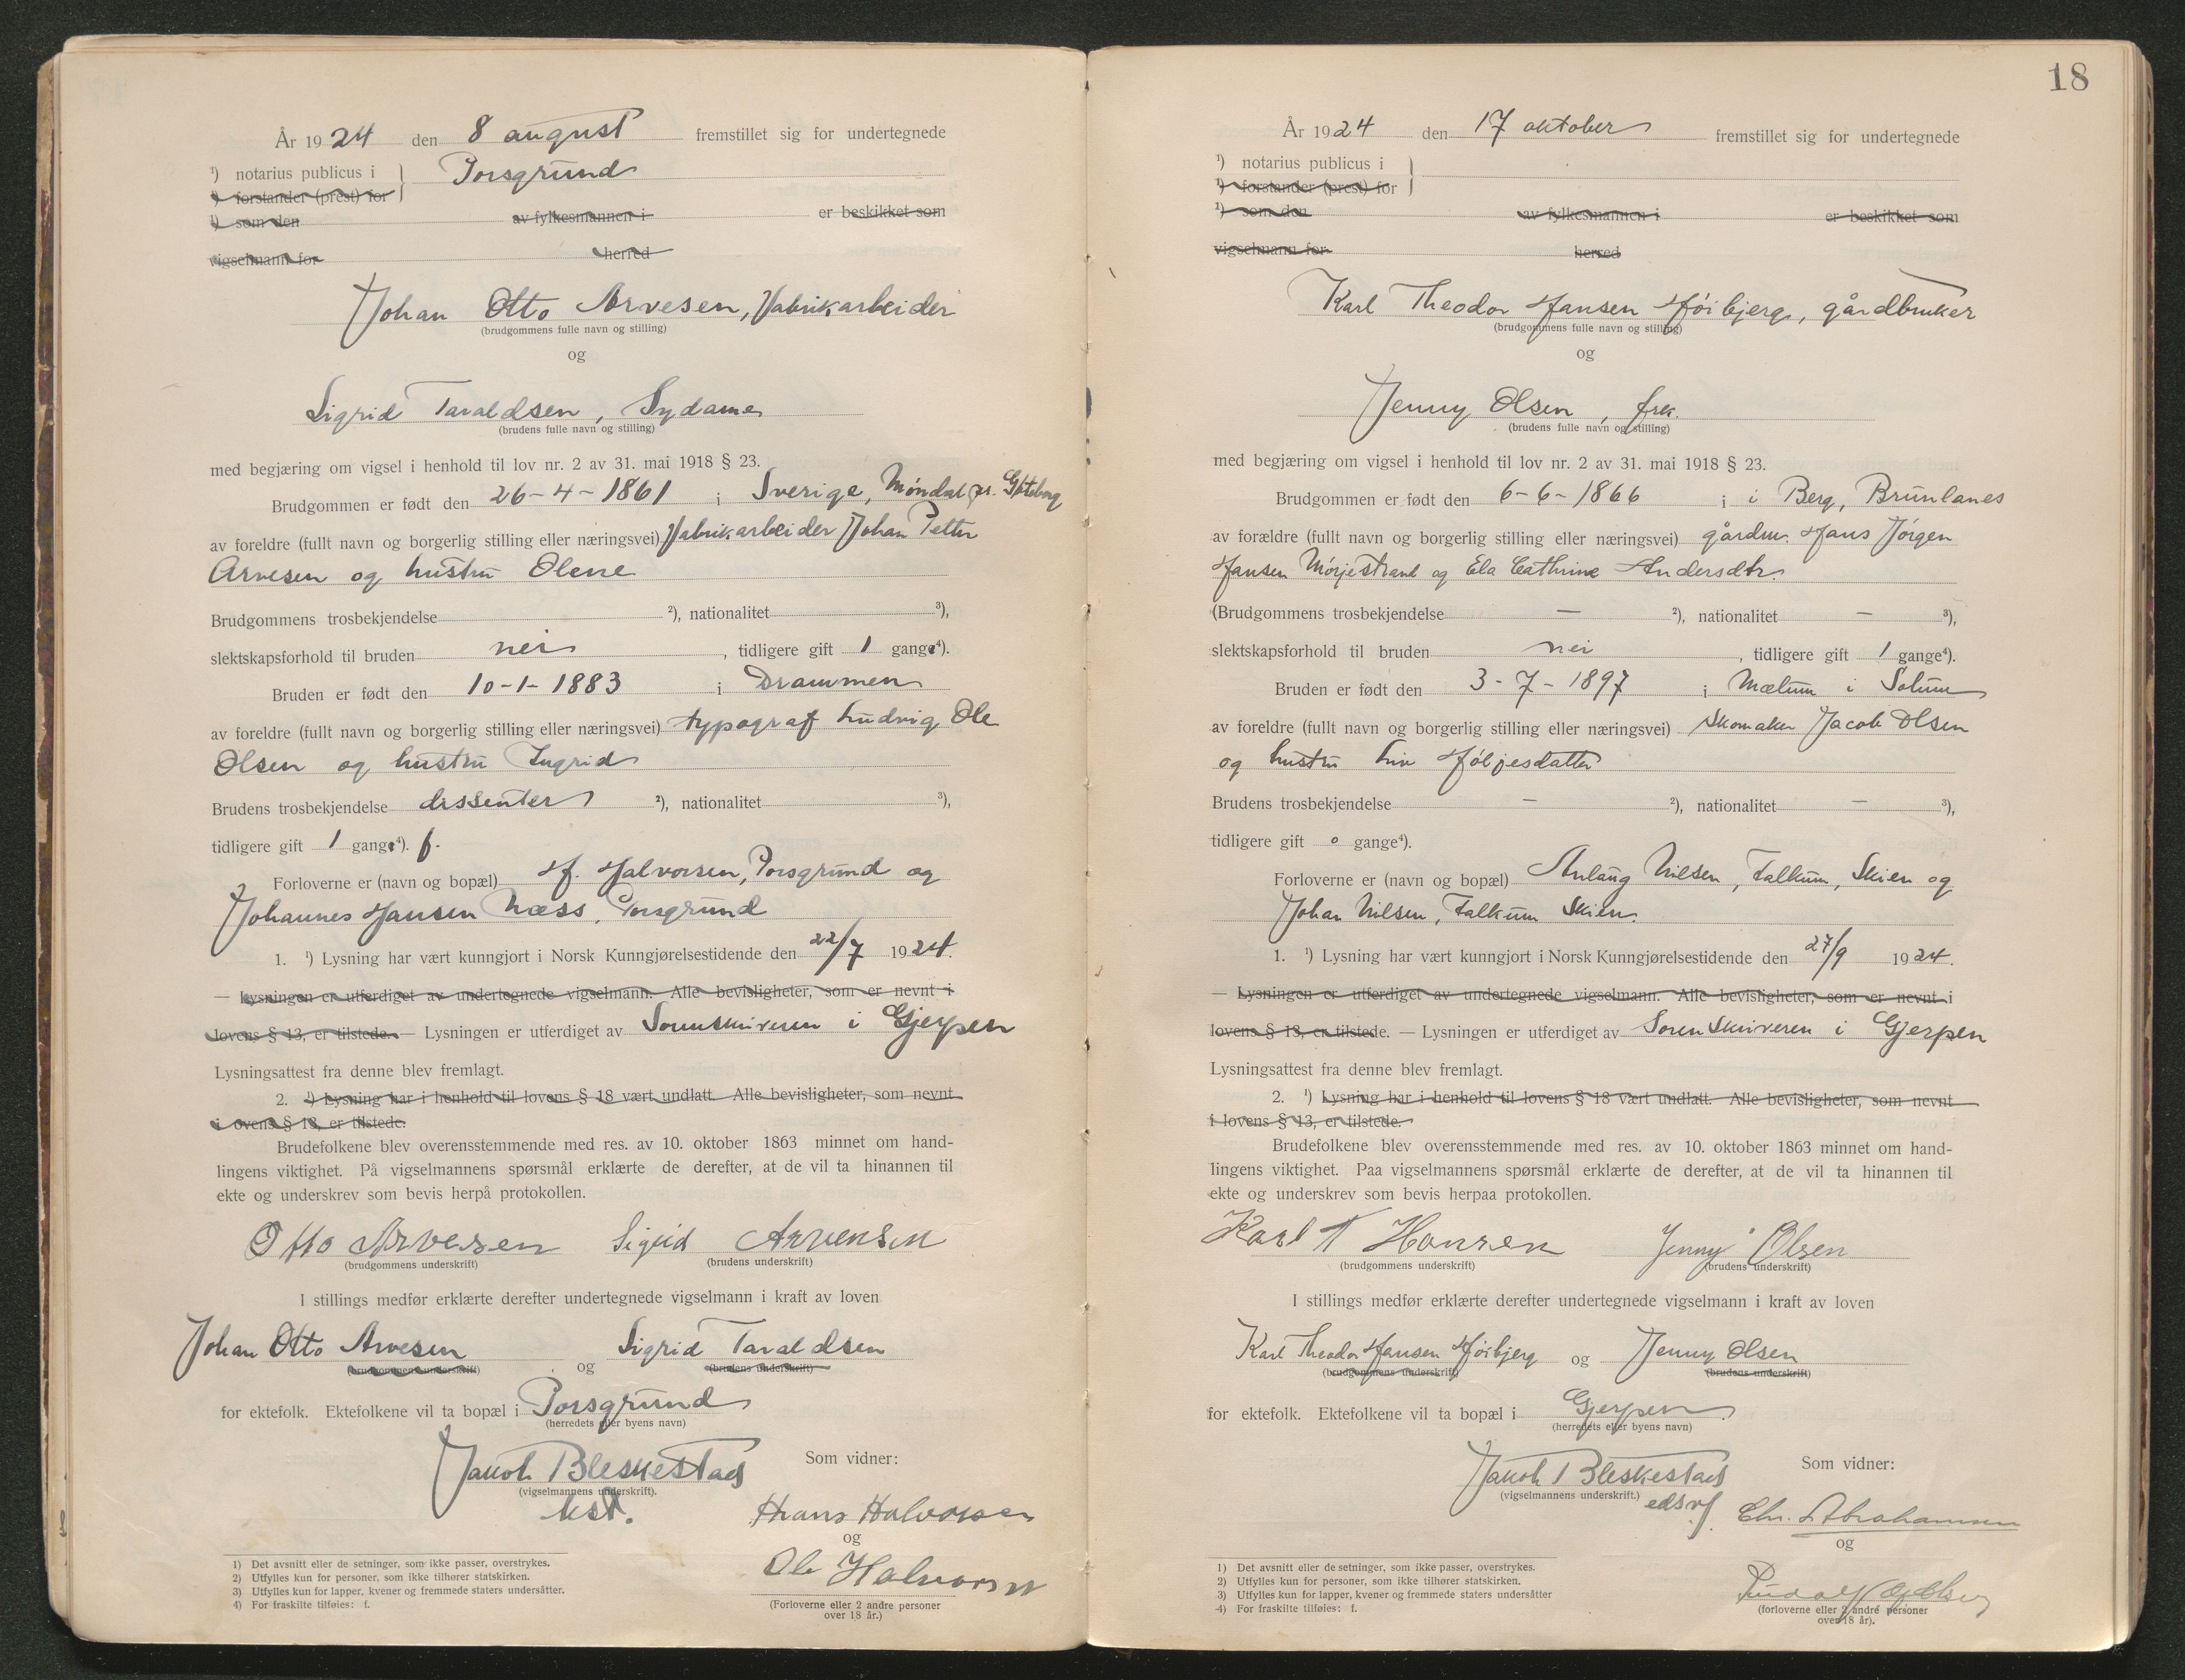 År 1924 den 8 august fremstillet sig for undertegnede
¹) notarius publicus i } Porsgrund
¹) forstander (prest) for
¹) som den av fylkesmannen i er beskikket som
vigselmann for herred
Johan Otto Arvesen, Fabrikarbeider
(brudgommens fulle navn og stilling)
og
Sigrid Taraldsen, Sydame
(brudens fulle navn og stilling)
med begjæring om vigsel i henhold til lov nr. 2 av 31. mai 1918 § 23.
Brudgommen er født den 26-4-1861 i Sverige, Møndal pr. Gøteborg
av foreldre (fullt navn og borgerlig stilling eller næringsvei) Fabrikarbeider Johan Petter
Arvesen og hustru Olene
Brudgommens trosbekjendelse ²), nationalitet ³),
slektskapsforhold til bruden nei, tidligere gift 1 gange⁴).
Bruden er født den 10-1-1883 i Drammen
av foreldre (fullt navn og borgerlig stilling eller næringsvei) typograf Ludvig Ole
Olsen og hustru Ingrid
Brudens trosbekjendelse dissenter ²), nationalitet ³),
tidligere gift 1 gang⁴). f.
Forloverne er (navn og bopæl) H. Halvorsen, Porsgrund og
Johannes Hansen Næss, Porsgrund
1. ¹) Lysning har vært kunngjort i Norsk Kunngjørelsestidende den 22/7 1924.
— Lysningen er utferdiget av undertegnede vigselmann. Alle bevisligheter, som er nevnt i
lovens § 13, er tilstede. — Lysningen er utferdiget av Sorenskriveren i Gjerpen
Lysningsattest fra denne blev fremlagt.
2. ¹) Lysning har i henhold til lovens § 18 vært undlatt. Alle bevisligheter, som nevnt
i ovens § 13, er tilstede.
Brudefolkene blev overensstemmende med res. av 10. oktober 1863 minnet om hand-
lingens viktighet. På vigselmannens spørsmål erklærte de derefter, at de vil ta hinannen til
ekte og underskrev som bevis herpå protokollen.
Otto Arvesen Sigrid Arvensen
(brudgommens underskrift) (brudens underskrift)
I stillings medfør erklærte derefter undertegnede vigselmann i kraft av loven
Johan Otto Arvesen og Sigrid Taraldsen
(brudgommens underskrift) (brudens underskrift)
for ektefolk. Ektefolkene vil ta bopæl i Porsgrund
(herredets eller byens navn)
Jakob Bleskestad Som vidner:
(vigselmannens underskrift).
kst. Hans Halvorsen
og
Ole Halvorsen
(Forloverne eller 2 andre personer
over 18 år.)
1) Det avsnitt eller de setninger, som ikke passer, overstrykes.
2) Utfylles kun for personer, som ikke tilhører statskirken.
3) Utfylles kun for lapper, kvener og fremmede staters undersåtter.
4) For fraskilte tilføies: f.
18
År 1924 den 17 oktober fremstillet sig for undertegnede
¹) notarius publicus i }
¹) forstander (prest) for
¹) som den av fylkesmannen i er beskikket som
vigselmann for herred
Karl Theodor Hansen Høibjerg, gårdbruker
(brudgommens fulle navn og stilling)
og
Jenny Olsen, frk.
(brudens fulle navn og stilling)
med begjæring om vigsel i henhold til lov nr. 2 av 31. mai 1918 § 23.
Brudgommen er født den 6-6-1866 i i Berg, Brunlanes
av forældre (fullt navn og borgerlig stilling eller næringsvei) gårdbr. Hans Jørgen
Hansen Mørjestrand og Ela Cathrine Andersdtr.
(Brudgommens trosbekjendelse — ²), nationalitet — ³),
slektskapsforhold til bruden nei, tidligere gift 1 gange⁴).
Bruden er født den 3-7-1897 i Mælum i Solum
av foreldre (fullt navn og borgerlig stilling eller næringsvei) Skomaker Jacob Olsen
og hustru Liv Høljesdatter
Brudens trosbekjendelse — ²), nationalitet — ³),
tidligere gift 0 gange⁴).
Forloverne er (navn og bopæl) Anlaug Nilsen, Falkum, Skien og
Johan Nilsen, Falkum Skien.
1. ¹) Lysning har vært kunngjort i Norsk Kunngjørelsestidende den 27/9 1924.
— Lysningen er utferdiget av undertegnede vigselmann. Alle bevisligheter, som er nevnt i
lovens § 13, er tilstede. — Lysningen er utferdiget av Sorenskriveren i Gjerpen
Lysningsattest fra denne blev fremlagt.
2. ¹) Lysning har i henhold til lovens § 18 vært undlatt. Alle bevisligheter, som nevnt
i lovens § 13, er tilstede.
Brudefolkene blev overensstemmende med res. av 10. oktober 1863 minnet om hand-
lingens viktighet. Paa vigselmannens spørsmål erklærte de derefter, at de vil ta hinannen til
ekte og underskrev som bevis herpaa protokollen.
Karl T Hansen Jenny Olsen
(brudgommens underskrift) (brudens underskrift)
I stillings medfør erklærte derefter undertegnede vigselmann i kraft av loven
Karl Theodor Hansen Høibjerg og Jenny Olsen
(brudgommens underskrift) (brudens underskrift)
for ektefolk. Ektefolkene vil ta bopæl i Gjerpen
(herredets eller byens navn)
Jakob Bleskestad Som vidner:
(vigselmannens underskrift.) edsvf. Chr. Abrahamsen
og
Rudolf
(forloverne eller 2 andre personer
over 18 år).
1) Det avsnitt eller de setninger, som ikke passer, overstrykes.
2) Utfylles kun for personer, som ikke tilhører statskirken.
3) Utfylles kun for lapper, kvener og fremmede staters undersåtter
4) For fraskilte tilføies: f.